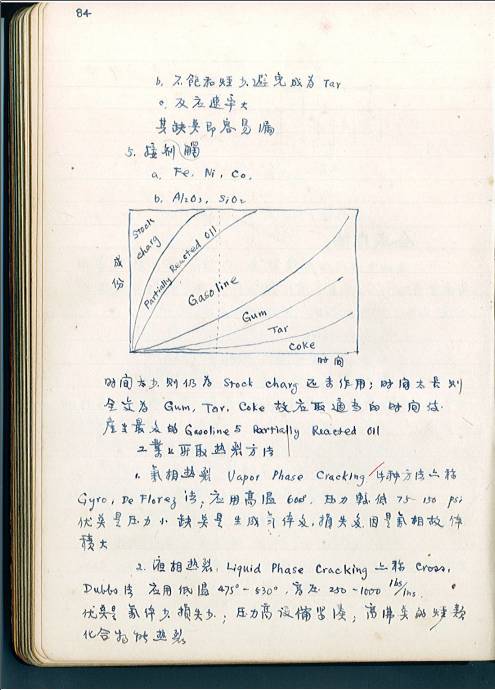 84
b. 不飽和烃少避免成為 Tar
c. 反应速率大
其缺臭即容易漏
5. 接觸
a. Fe, Ni, Co,
b. Al2O3, SiO2
Stock charg
Partially Reacted Oil
Gasoline
Gum
Tar
Coke
成份
时间
时间太少则仍为 Stock charg 还未作用；时间太長则
全变为 Gum, Tar, Coke 故应取適当的时间使
產生最多的 Gasoline 5 Partially Reacted Oil
工業上所取热裂方法
1. 氣相热裂 Vapor Phase Cracking 方法
Gyro, De Florez 法, 应用高温 600°, 压力較低 75-150 psi
优臭是压力小缺臭是生成气体多, 損失多因是氣相故体
積大
2. 液相热裂, Liquid Phase Cracking Cross,
Dubbs 法 应用低温 475°-530°, 高压 250-1000 lbs/ins.
优臭是氣体少損失少；压力高設備；高沸臭的烃類
化合物 热裂